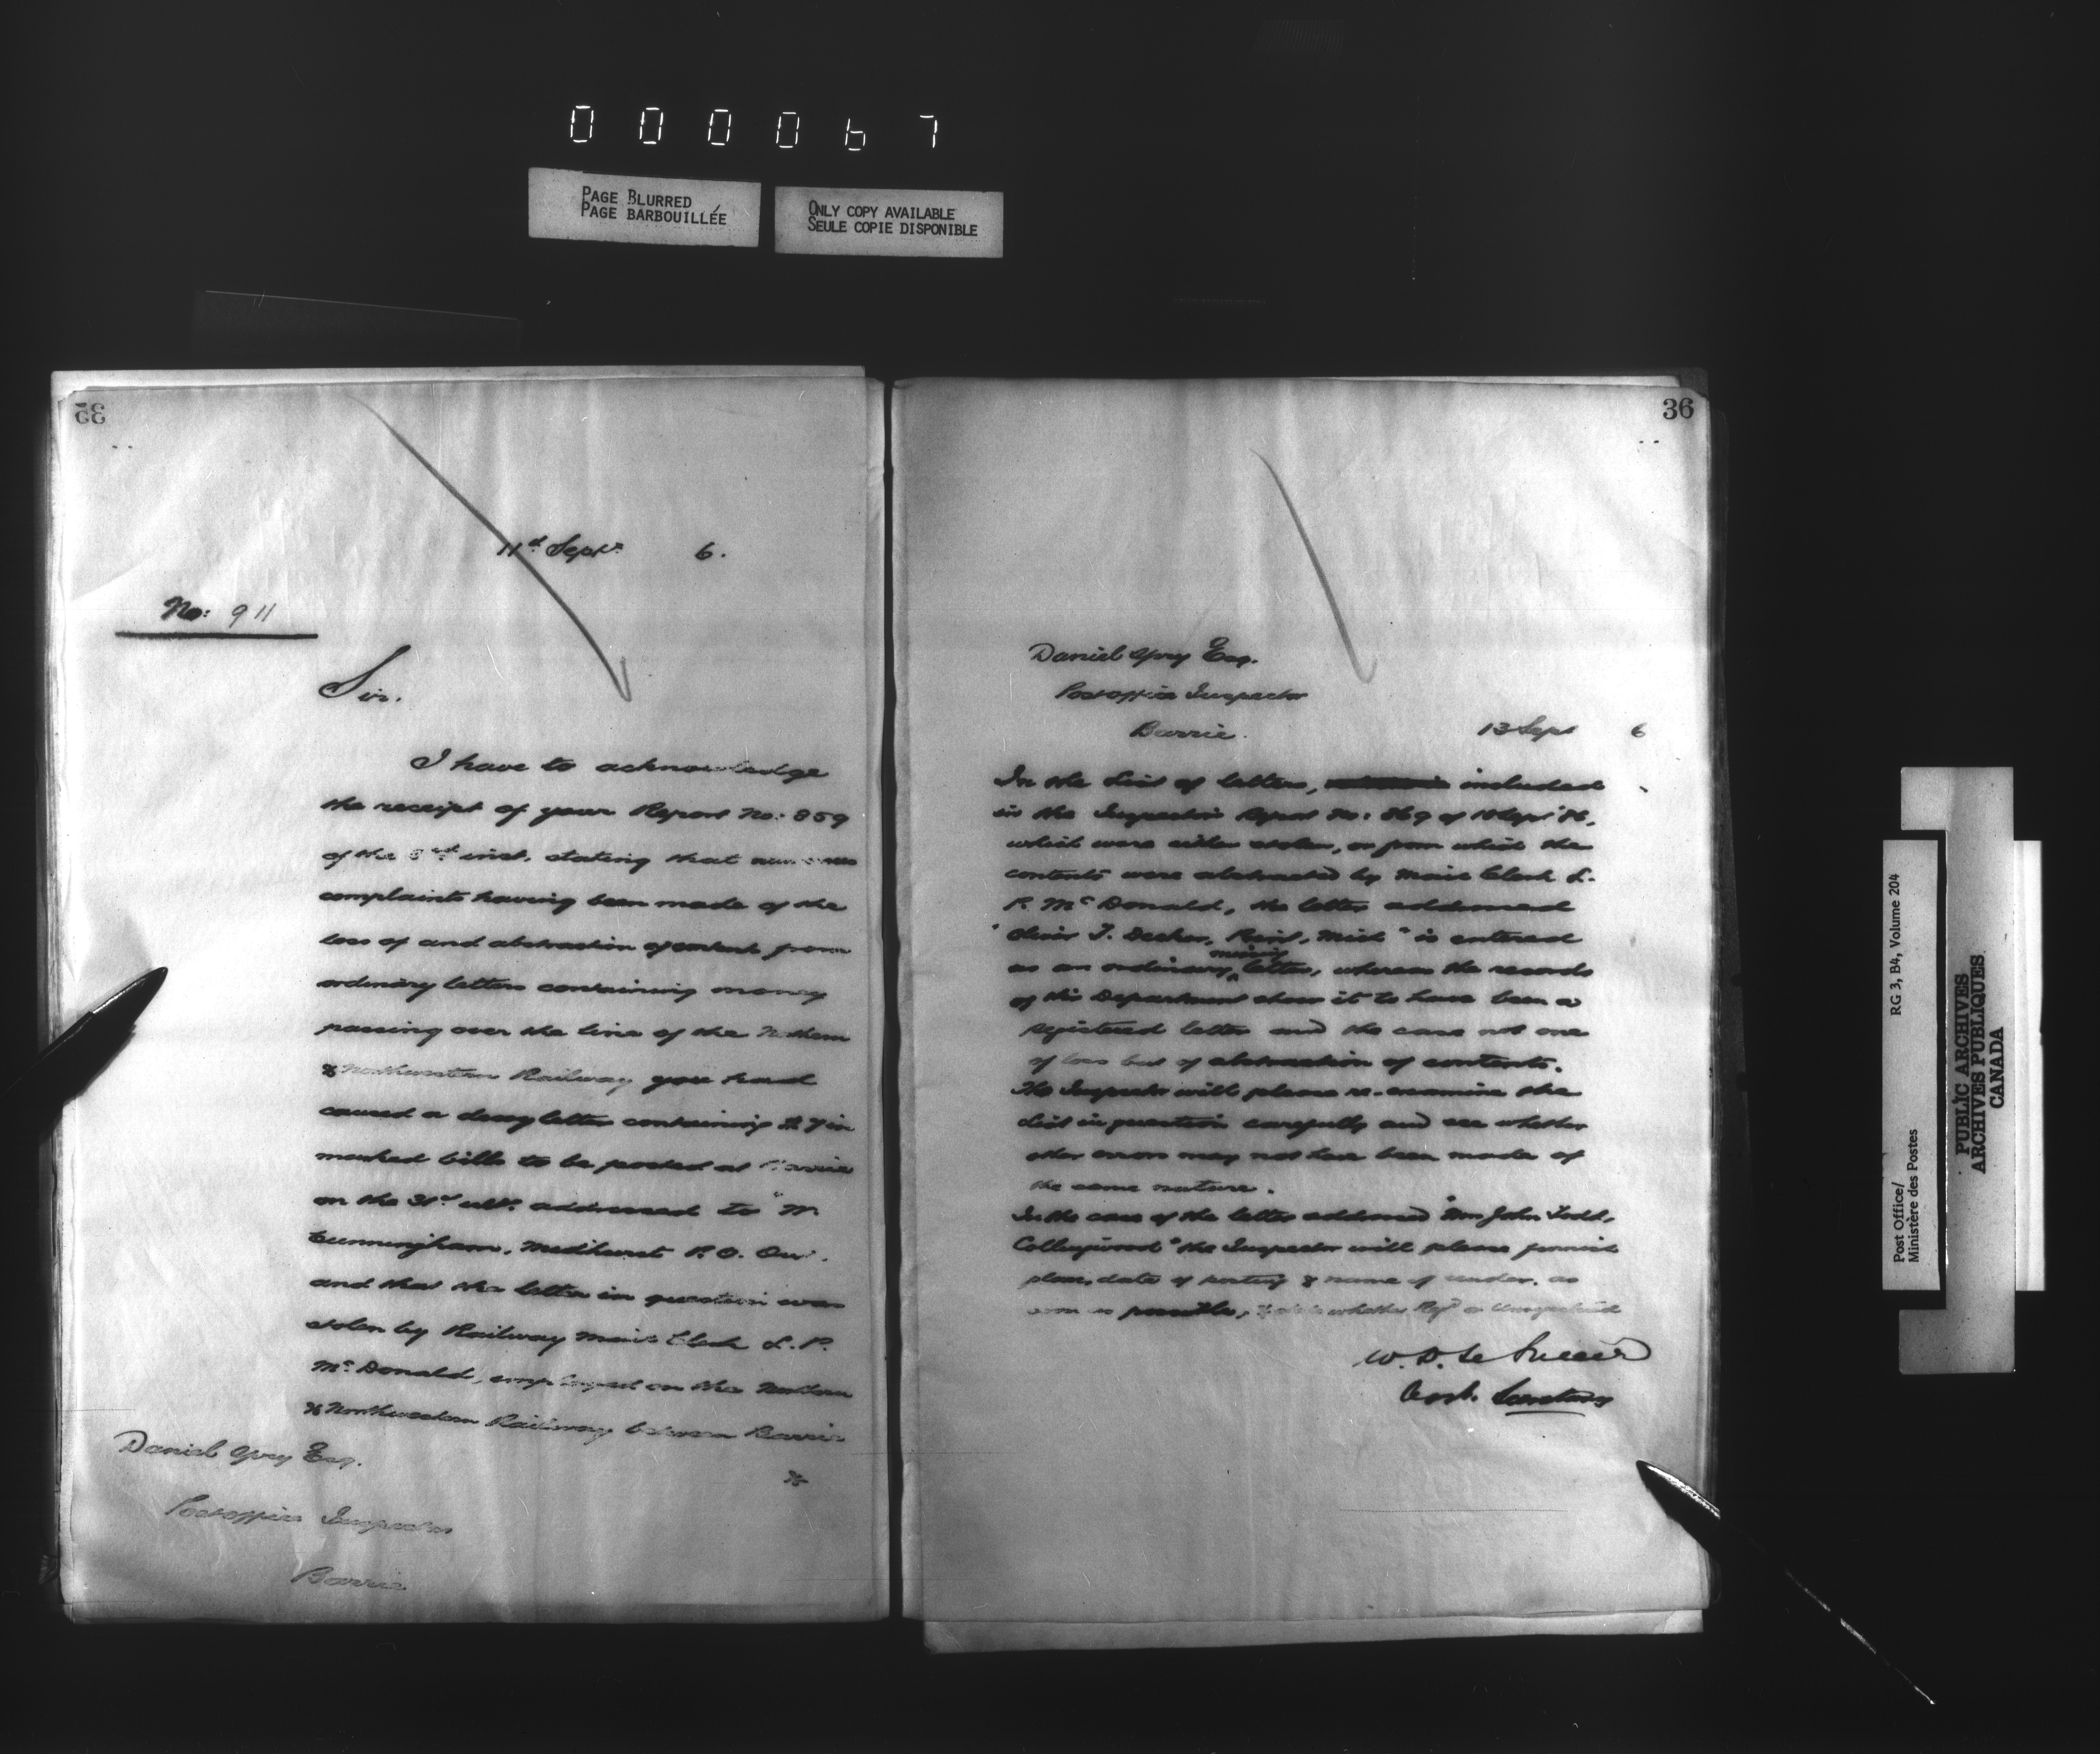 0 0 0 0 6 7
PAGE BLURRED
PAGE BARBOUILLÉE
ONLY COPY AVAILABLE
SEULE COPIE DISPONIBLE
35
11th Sept 6.
No: 911
Sir.
I have to acknowledge
the receipt of your Report No: 859
of the inst. stating that numerous
complaints having been made of the
loss of and abstraction of contents from
ordinary letters containing money
passing over the line of the Northern
& Northwestern Railway you had
caused a decoy letter containing $7 in
marked bills to be posted at Barrie
on the 31st ult. addressed to "M.
Cunningham, Medhurst P.O. Ont.
and that the letter in question was
stolen by Railway Mail Clerk L. P.
McDonald, employed on the Northern
& Northwestern Railway between Barrie
&
Daniel Spry Esq.
Postoffice Inspector
Barrie
36
Daniel Spry Esq.
Postoffice Inspector
Barrie.
13 Sept 6
In the List of letters, included
in the Inspector's Report No: 869 of Sept '86,
which were either stolen, or from which the
contents were abstracted by Mail Clerk L.
P. McDonald, the letter addressed
"Oliver T. Decker, Mich" is entered
as an ordinary missing letter, whereas the records
of this Department show it to have been a
registered letter and the case not one
of loss but of abstraction of contents.
The Inspector will please re-examine the
List in question carefully and see whether
other errors may not have been made of
the same nature.
In the case of the letter addressed "Wm John Todd,
Collingwood" the Inspector will please furnish
place, date of posting & name of sender, as
soon as possible, & state whether Regd or Unregistered
W. D. Le Sueur
Asst. Secretary
Post Office/ RG 3, B4, Volume 204
Ministère des Postes
PUBLIC ARCHIVES
ARCHIVES PUBLIQUES
CANADA